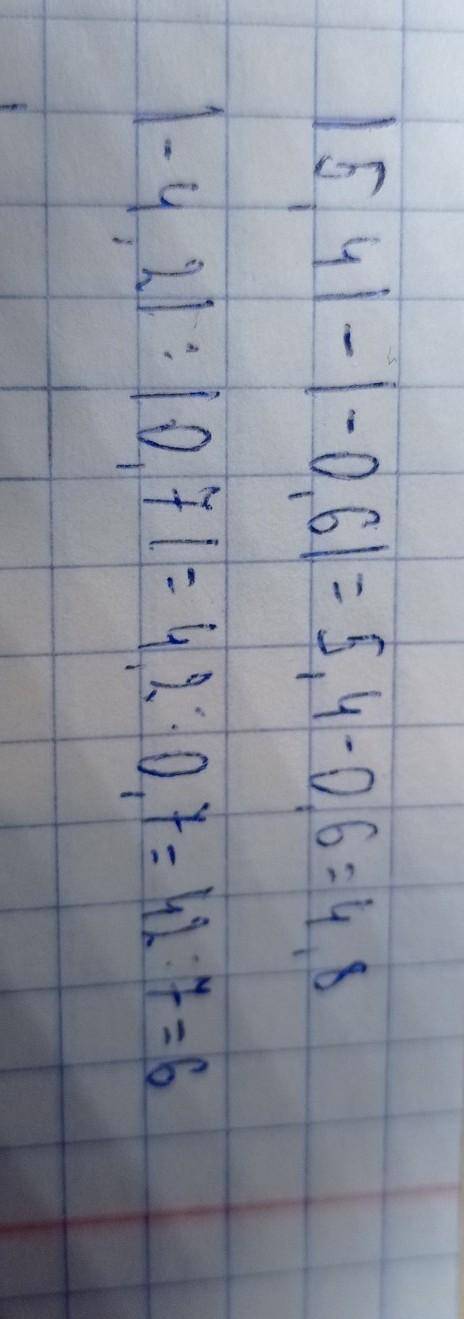 |5,4|-|-0,6|=5,4-0,6=4,8
|-4,2|:|0,7|=4,2:0,7=42:7=6